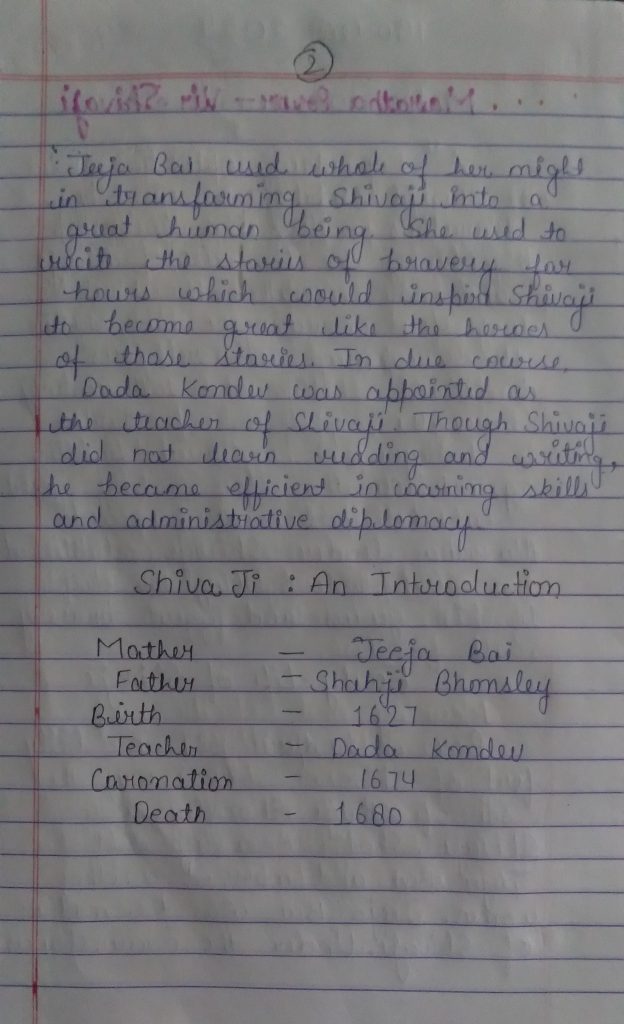 2
Maratha Power - Vir Shivaji
Jeeja Bai used whole of her might
in transforming Shivaji into a
great human being. She used to
recite the stories of bravery for
hours which would inspire Shivaji
to become great like the heroes
of those stories. In due course,
Dada Kondev was appointed as
the teacher of Shivaji. Though Shivaji
did not learn reading and writing,
he became efficient in warning skills
and administrative diplomacy.
Shiva Ji : An Introduction
Mother — Jeeja Bai
Father - Shahji Bhonsley
Birth - 1627
Teacher - Dada Kondev
Coronation - 1674
Death - 1680